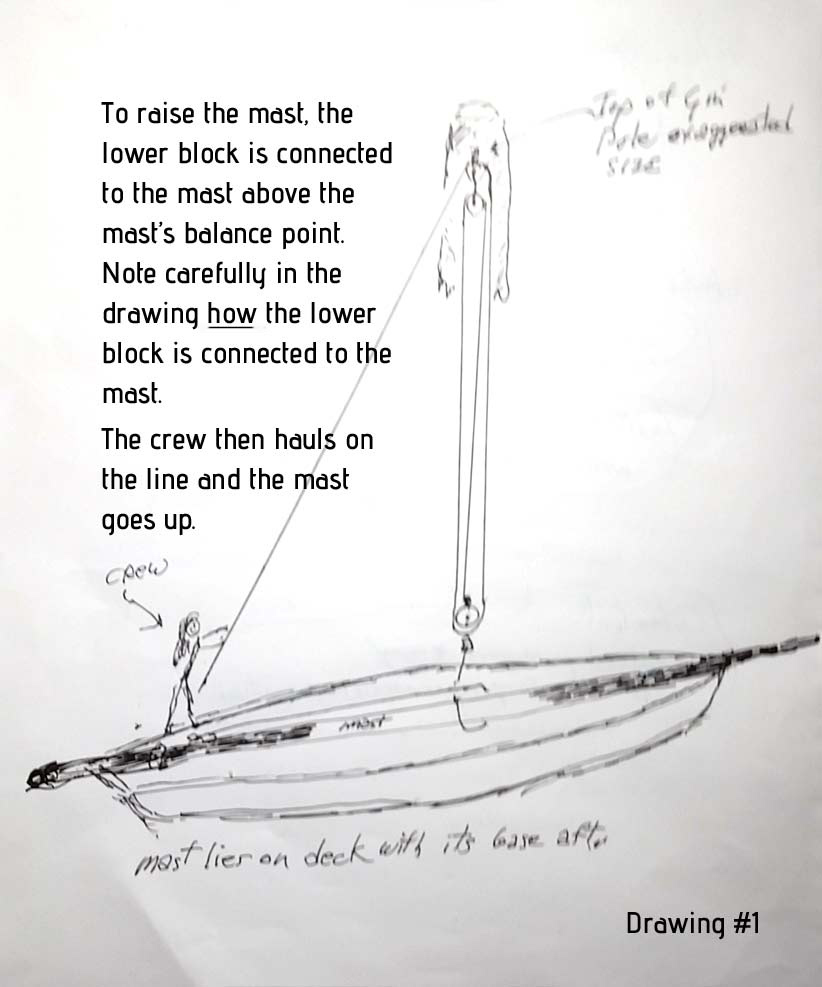 To raise the mast, the
lower block is connected
to the mast above the
mast's balance point.
Note carefully in the
drawing how the lower
block is connected to the
mast.
The crew then hauls on
the line and the mast
goes up.
Top of Gin
Pole exaggerated
size
crew
mast
mast lies on deck with its base aft.
Drawing #1